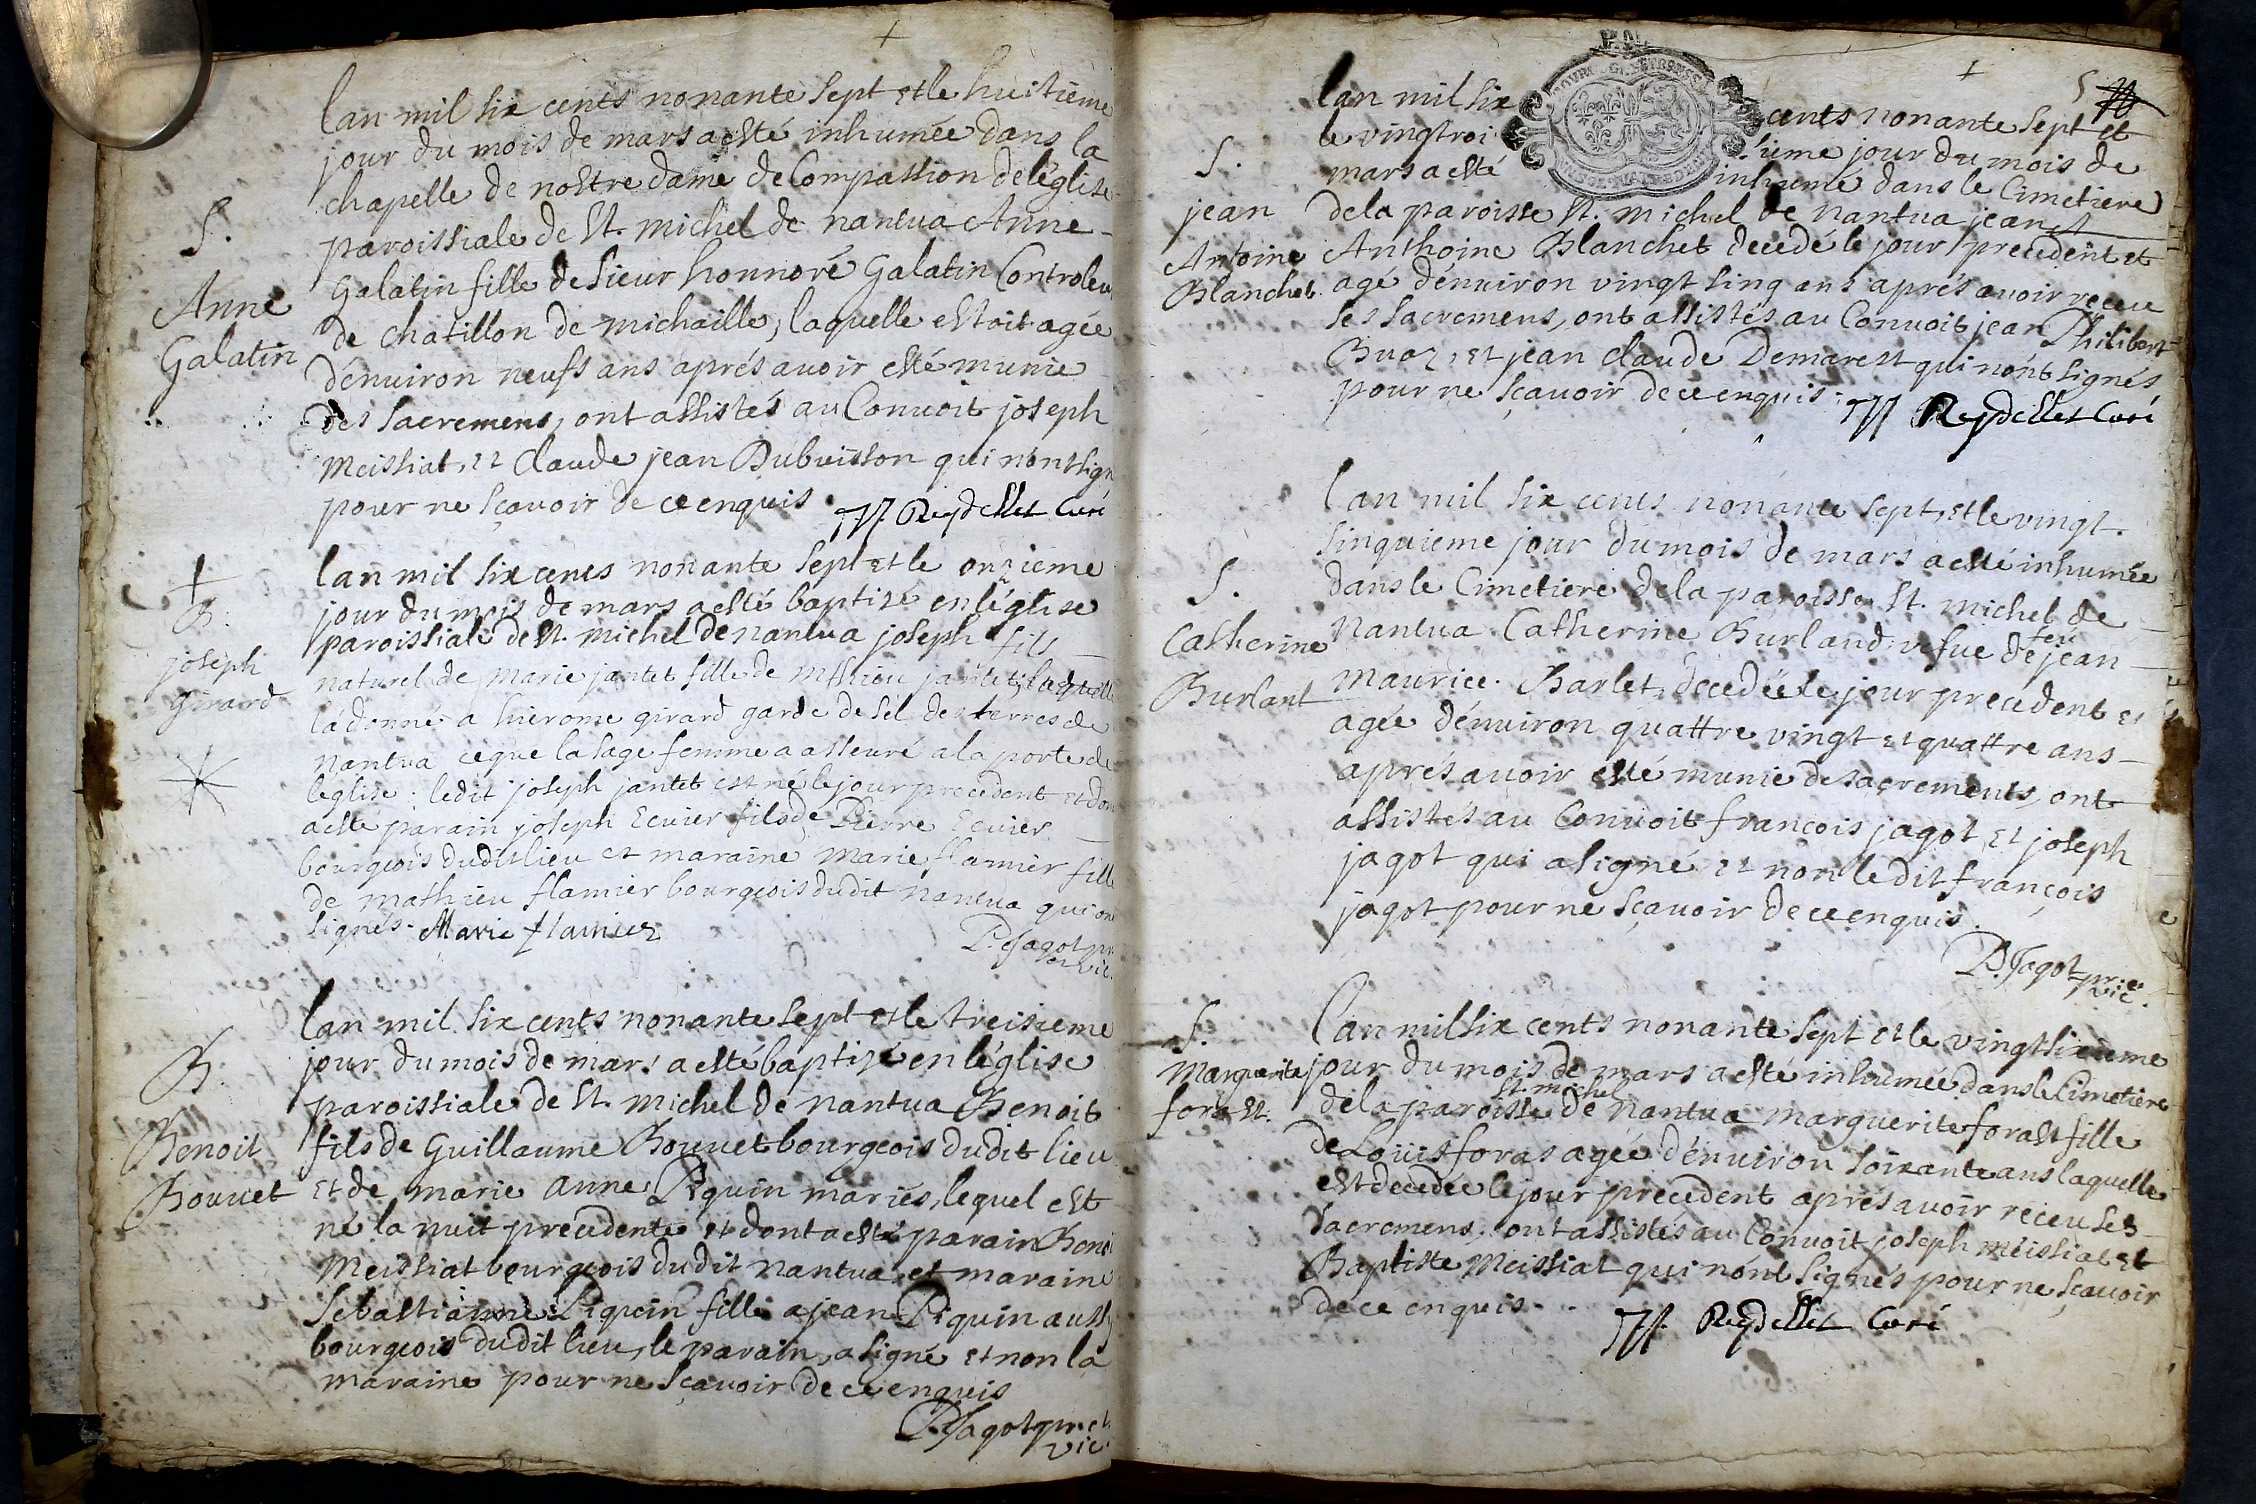 lan mil six cents nonante sept et le huitieme
jour du mois de mars a esté inhumée dans la
chapelle de nostre dame de Compassion de léglise
paroissiale de St. michel de nantua Anne
Galatin fille de sieur honnoré Galatin Controleu
de chatillon de michaille, laquelle estoit agée
dénuiron neufs ans aprés auoir esté munie
des sacremens, ont assistés au Conuoit joseph
Meissiat, et claude jean Dubuisson qui nont sign
pour ne sçauoir de ce enquis. Reydellet Curé
S.
Anne
Galatin
lan mil six cents nonante sept et le onzieme
jour du mois de mars a esté baptizé en léglise
paroissiale de St. michel de nantua joseph fils
naturel de marie jantet fille de jantet, laquelle
la donné a hierome girard garde de sel des terres de
nantua ce que la sage femme a asseuré a la porte de
léglise. ledit joseph jantet est né le jour precedent et don
a esté parain joseph Ecuier fils de Pierre Ecuier
bourgeois dudit lieu et maraine Marie flamier fille
de mathieu flamier bourgeois dudit nantua qui on
signés. Marie flamier
P. Jagot pr.
vic.
B.
joseph
girard
lan mil six cents nonante sept et le treisieme
jour du mois de mars a esté baptizé en léglise
paroissiale de St. michel de nantua Benoit
fils de Guillaume Bouuet bourgeois dudit lieu
et de marie anne Piquin mariés, lequel est
né la nuit precedente et dont a esté parain Benoi
Meissiat bourgeois dudit nantua, et maraine
Sebastianne Piquin fille a jean Piquin aussy
bourgeois dudit lieu, le parain a signé et non la
maraine pour ne sçauoir de ce enquis
P. Jagot pr. et
vic.
B.
Benoit
Bouuet
5
lan mil six cents nonante sept et
le vingtroisieme jour du mois de
mars a esté inhumé dans le Cimetiere
de la paroisse St. michel de nantua jean
Anthoine Blanchet decedé le jour precedent et
agé dénuiron vingt sinq ans aprés auoir receu
ses sacremens, ont assistés au Conuoit jean Philibert
Buaz, et jean claude Demarest qui nont signés
pour ne sçauoir de ce enquis. Reydellet Curé
S.
jean
Antoine
Blanchet
lan mil six cents nonante sept, et le vingt
sinquieme jour du mois de mars a esté inhumée
dans le Cimetiere de la paroisse St. michel de
Nantua Catherine Burland vefue de feu jean
Maurice Barlet, decedée le jour precedent et
agée dénuiron quattre vingt et quattre ans
aprés auoir esté munie de sacrements, ont
assistés au Conuoit françois jagot, et joseph
jagot qui a signé et non ledit françois
jagot pour ne sçauoir de ce enquis.
P. Jagot pr. et
vic.
S.
Catherine
Burlant
lan mil six cents nonante sept et le vingtsixieme
jour du mois de mars a esté inhumée dans le Cimetiere
de la paroisse St. michel de nantua marguerite forast fille
de Louis foras agée dénuiron soixante ans laquelle
est decedée le jour precedent aprés auoir receu ses
sacremens. ont assistés au Conuoit joseph meissiat et
Baptiste Meissiat qui nont signés pour ne sçauoir
de ce enquis. Reydellet Curé
S.
Marguerite
forast.